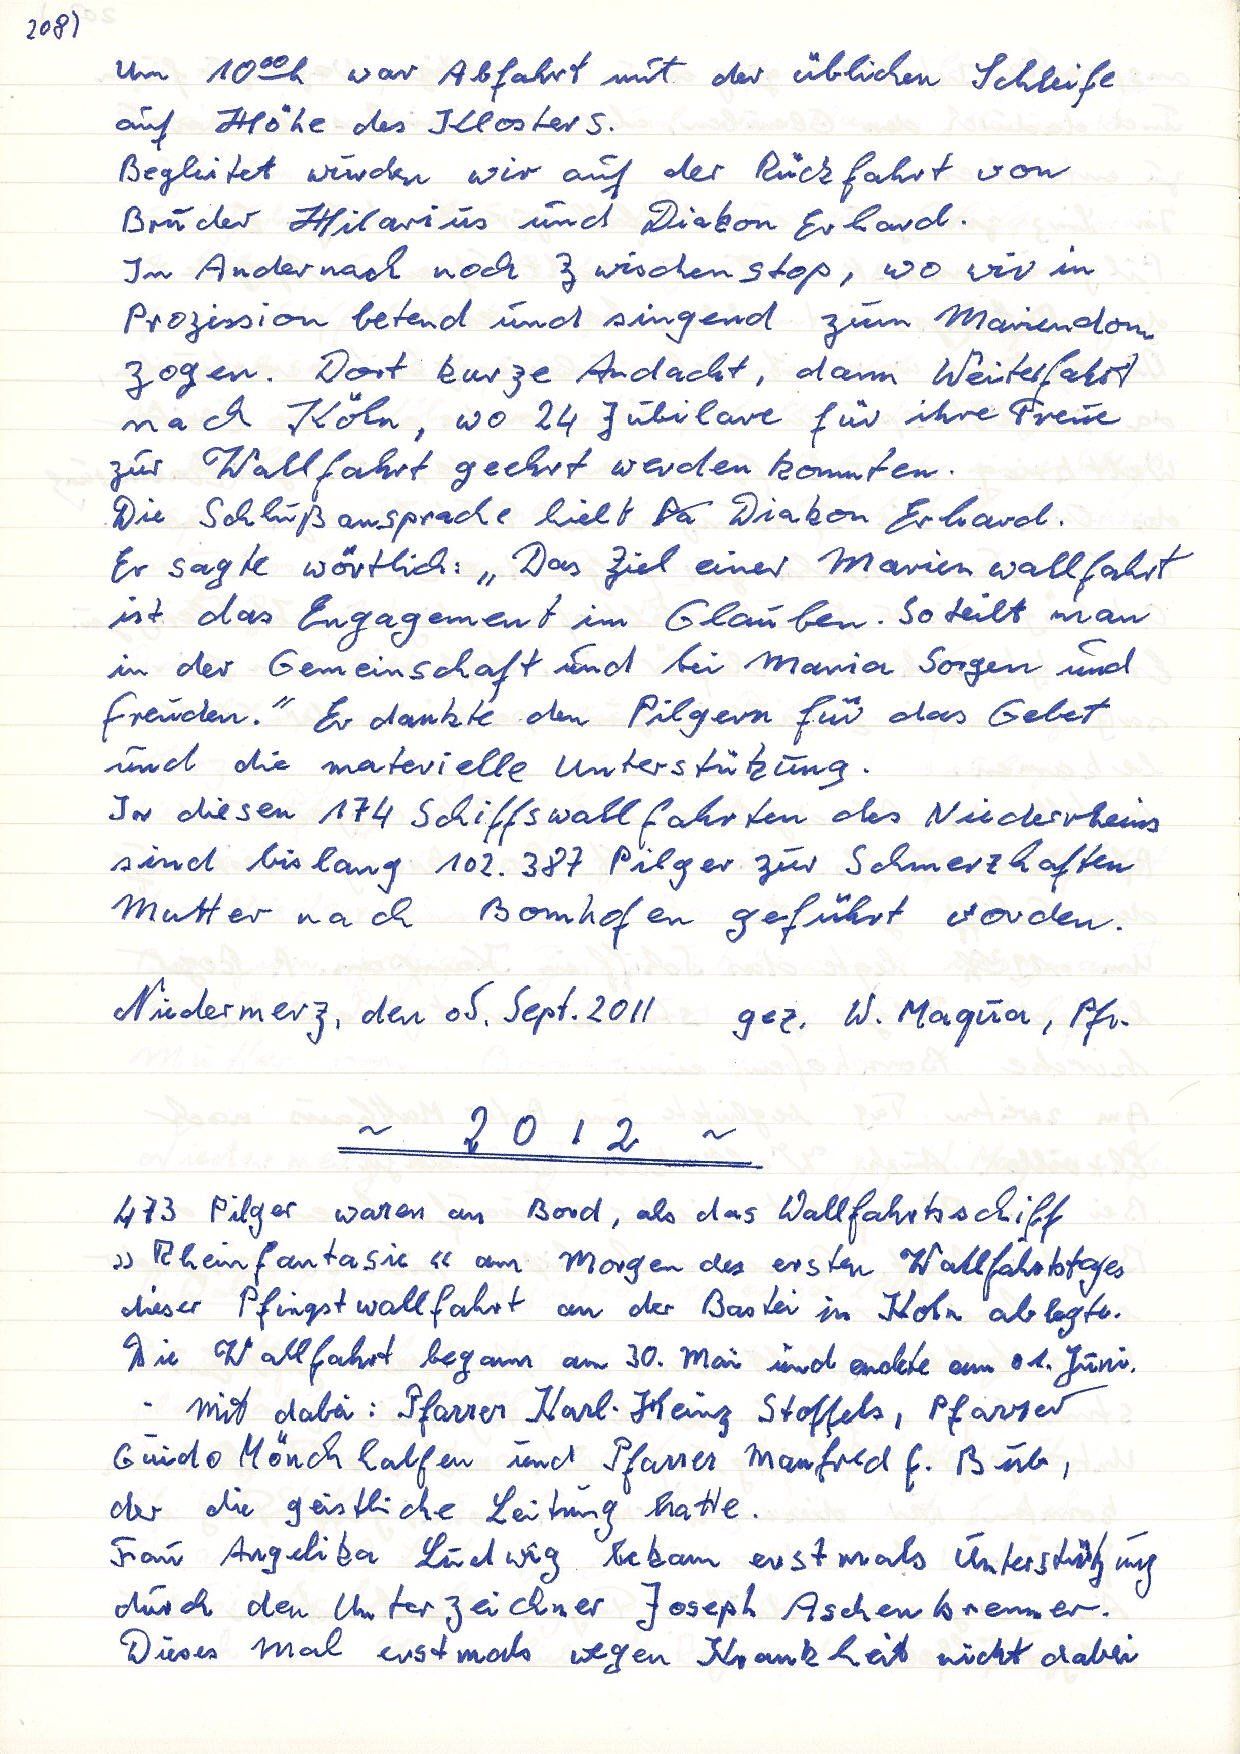 208)
Um 10⁰⁰h war Abfahrt mit der üblichen Schleife
auf Höhe des Klosters.
Begleitet wurden wir auf der Rückfahrt von
Bruder Hilarius und Diakon Erhard.
In Andernach noch Zwischenstop, wo wir in
Prozession betend und singend zum Mariendom
zogen. Dort kurze Andacht, dann Weiterfahrt
nach Köln, wo 24 Jubilare für ihre Treue
zur Wallfahrt geehrt werden konnten.
Die Schlußansprache hielt Diakon Erhard.
Er sagte wörtlich: „Das Ziel einer Marienwallfahrt
ist das Engagement im Glauben. So teilt man
in der Gemeinschaft und bei Maria Sorgen und
Freuden.“ Er dankte den Pilgern für das Gebet
und die materielle Unterstützung.
In diesen 174 Schiffswallfahrten des Niederrheins
sind bislang 102.387 Pilger zur Schmerzhaften
Mutter nach Bornhofen geführt worden.
Niedermerz, den 05. Sept. 2011 gez. W. Maqua, Pfr.
~ 2012 ~
473 Pilger waren an Bord, als das Wallfahrtsschiff
»Rheinfantasie« am Morgen des ersten Wallfahrtstages
dieser Pfingstwallfahrt an der Bastei in Köln ablegte.
Die Wallfahrt begann am 30. Mai und endete am 01. Juni.
- Mit dabei: Pfarrer Karl-Heinz Stoffels, Pfarrer
Guido Mönchhalfen und Pfarrer Manfred f. Bub,
der die geistliche Leitung hatte.
Frau Angelika Ludwig bekam erstmals Unterstützung
durch den Unterzeichner Joseph Aschenbrenner.
Dieses Mal erstmals wegen Krankheit nicht dabei